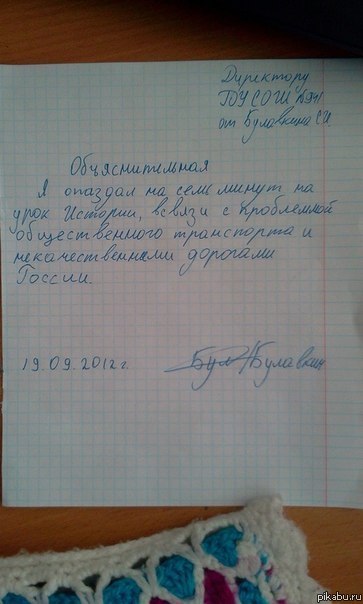 Директору
ГОУ СОШ №941
от Булавкина С.И.
Объяснительная
Я опаздал на семь минут на
урок Истории, всвязи с проблемной
общественного транспорта и
некачественными дорогами
России.
19.09.2012г.
Бул/Булавкин
pikabu.ru